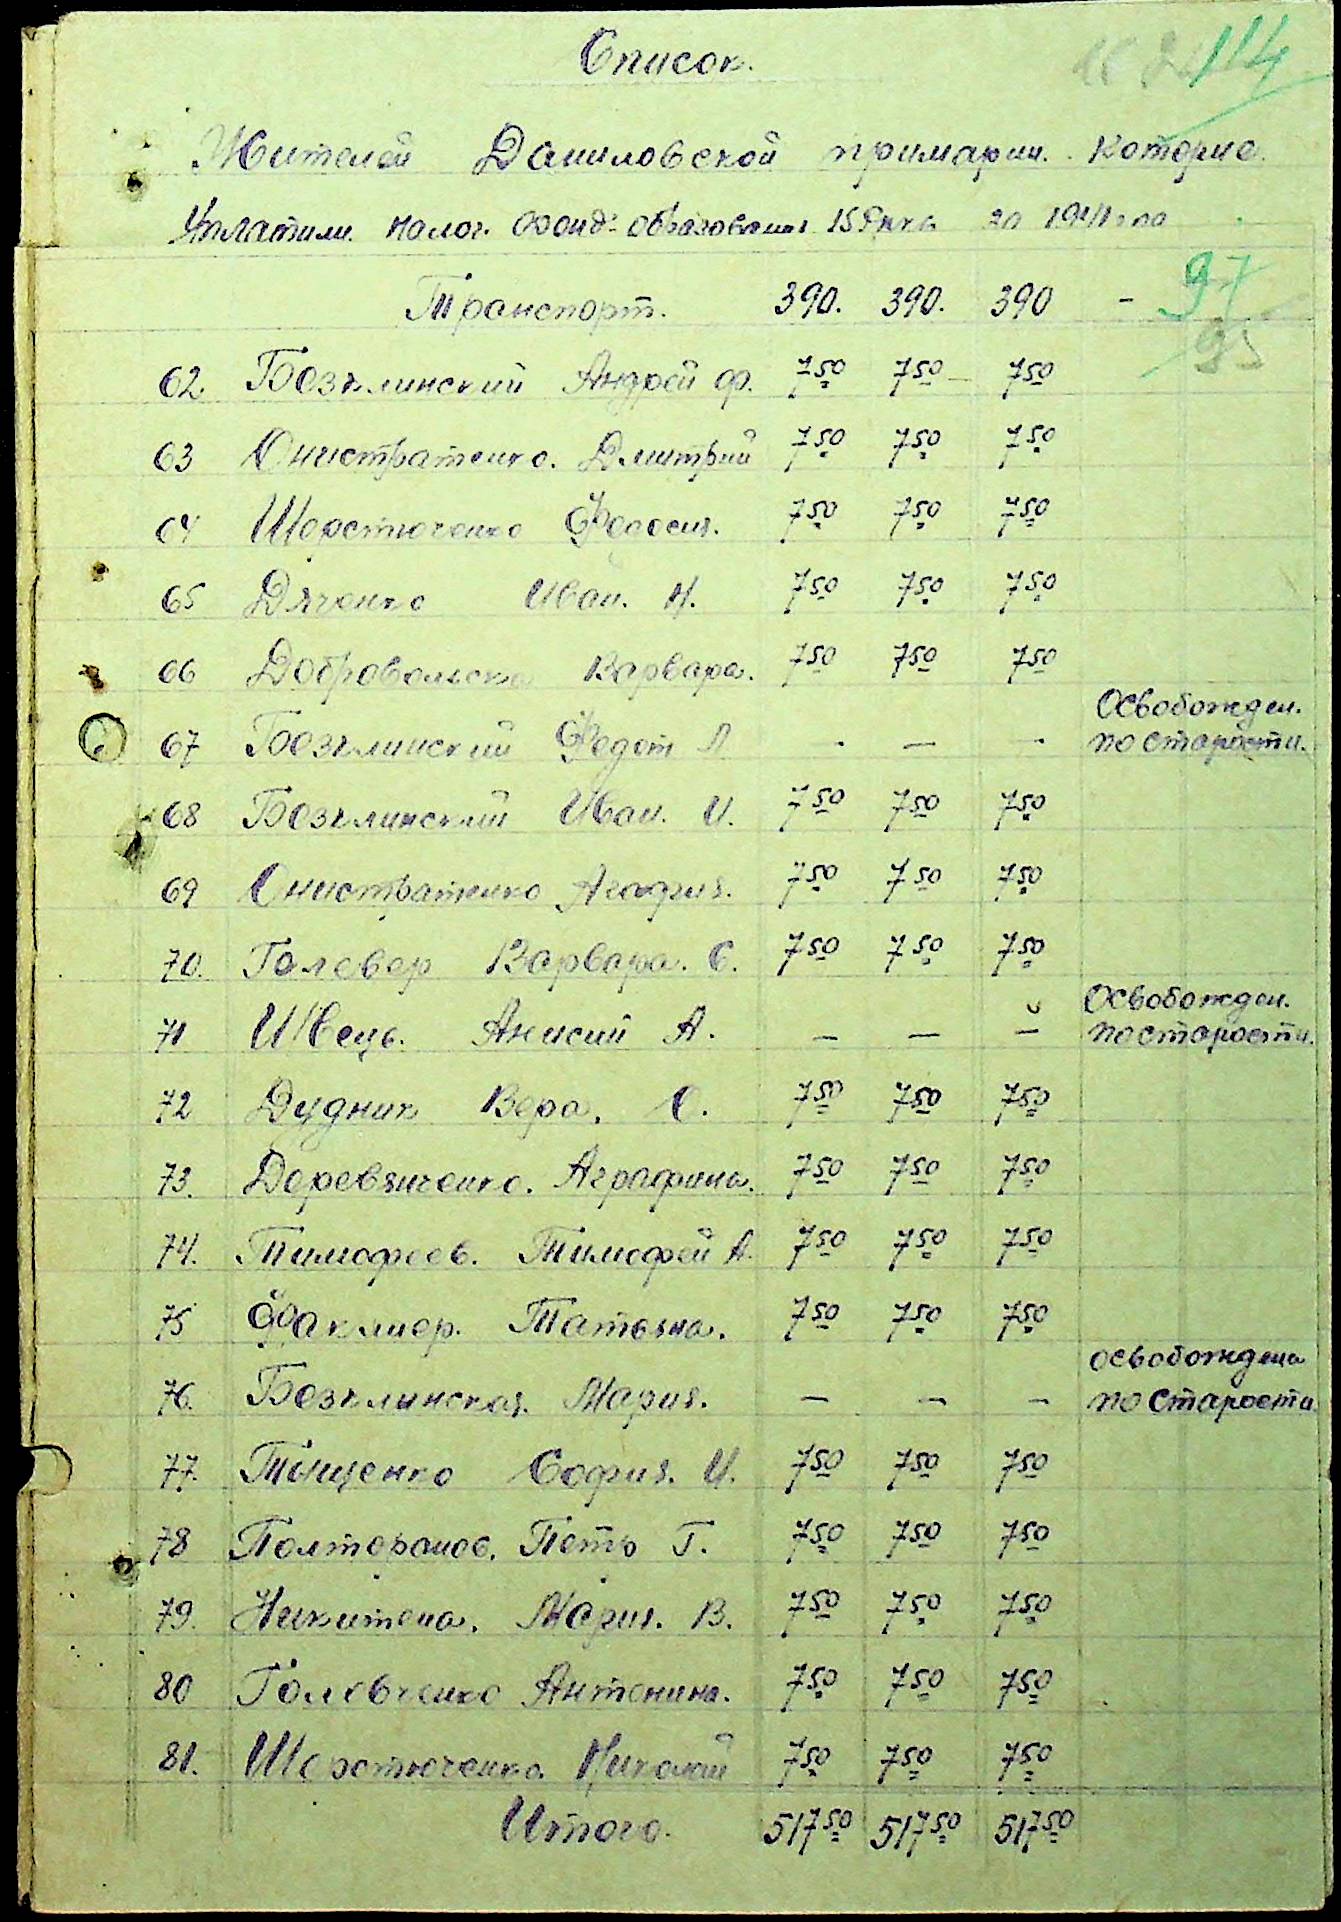 114
Список.
Жителей Даниловской примарии. которие
Уплатили налог. Фонд образования 15 Рик. за 1941 год
97
Транспорт. 390. 390. 390 -
95
62 Безклинский Андрей Ф. 7 50 7 50 7 50
63 Онистратенко. Дмитрий 7 50 7 50 7 50
64 Шерстюченко Феоосия. 7 50 7 50 7 50
65 Дяченко Иван. Н. 7 50 7 50 7 50
66 Добровольска Варвара. 7 50 7 50 7 50
Освобожден.
67 Безклинский Федот Л - — - по старости.
68 Безклинский Иван. И. 7 50 7 50 7 50
69 Онистратенко Агафия. 7 50 7 50 7 50
70. Голевер Варвара. С. 7 50 7 50 7 50
Освобожден.
71 Швець. Анисий А. — — — по старости.
72 Дудник Вера. О. 7 50 7 50 7 50
73. Деревянченко. Аграфина. 7 50 7 50 7 50
74. Тимофеев. Тимофей А. 7 50 7 50 7 50
75 Факлиер. Татьяна. 7 50 7 50 7 50
освобождена
76. Безклинская. Мария. — — — по старости
77. Тыщенко София. И. 7 50 7 50 7 50
78 Полторанос. Петь Г. 7 50 7 50 7 50
79. Никитена. Мария. В. 7 50 7 50 7 50
80 Головченко Антонина. 7 50 7 50 7 50
81. Шерстюченко. Николай 7 50 7 50 7 50
Итого. 517 50 517 50 517 50